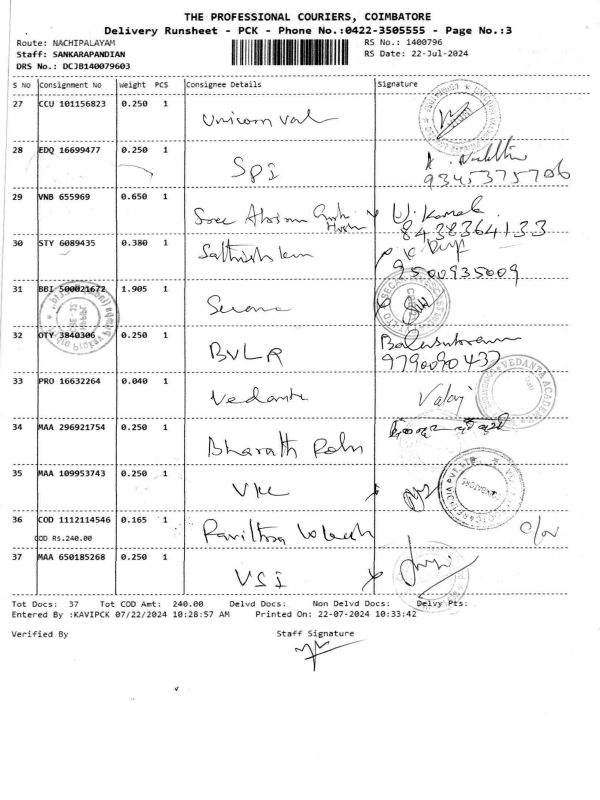 THE PROFESSIONAL COURIERS, COIMBATORE
Delivery Runsheet - PCK - Phone No.:0422-3505555 - Page No.:3
Route: NACHIPALAYAM RS No.: 1400796
Staff: SANKARAPANDIAN RS Date: 22-Jul-2024
DRS No.: DCJB140079603
S No Consignment No Weight PCS Consignee Details Signature
27 CCU 101156823 0.250 1 Unicorn Val
28 EDQ 16699477 0.250 1 Spi
9345375706
29 VNB 655969 0.650 1 Sree U. Kamal
8438364133
30 STY 6089435 0.380 1 Sathish
9500935009
31 BBI 500021672 1.905 1
32 OTY 3840306 0.250 1 BVLR
9790090437
33 PRO 16632264 0.040 1 Vedanta
VEDANTA ACADEMY
34 MAA 296921754 0.250 1 Bharath
35 MAA 109953743 0.250 1
36 COD 1112114546 0.165 1 Pavithra
COD RS.240.00
37 MAA 650185268 0.250 1 VSI
Tot Docs: 37 Tot COD Amt: 240.00 Delvd Docs: Non Delvd Docs: Delvy Pts:
Entered By :KAVIPCK 07/22/2024 10:28:57 AM Printed On: 22-07-2024 10:33:42
Verified By Staff Signature